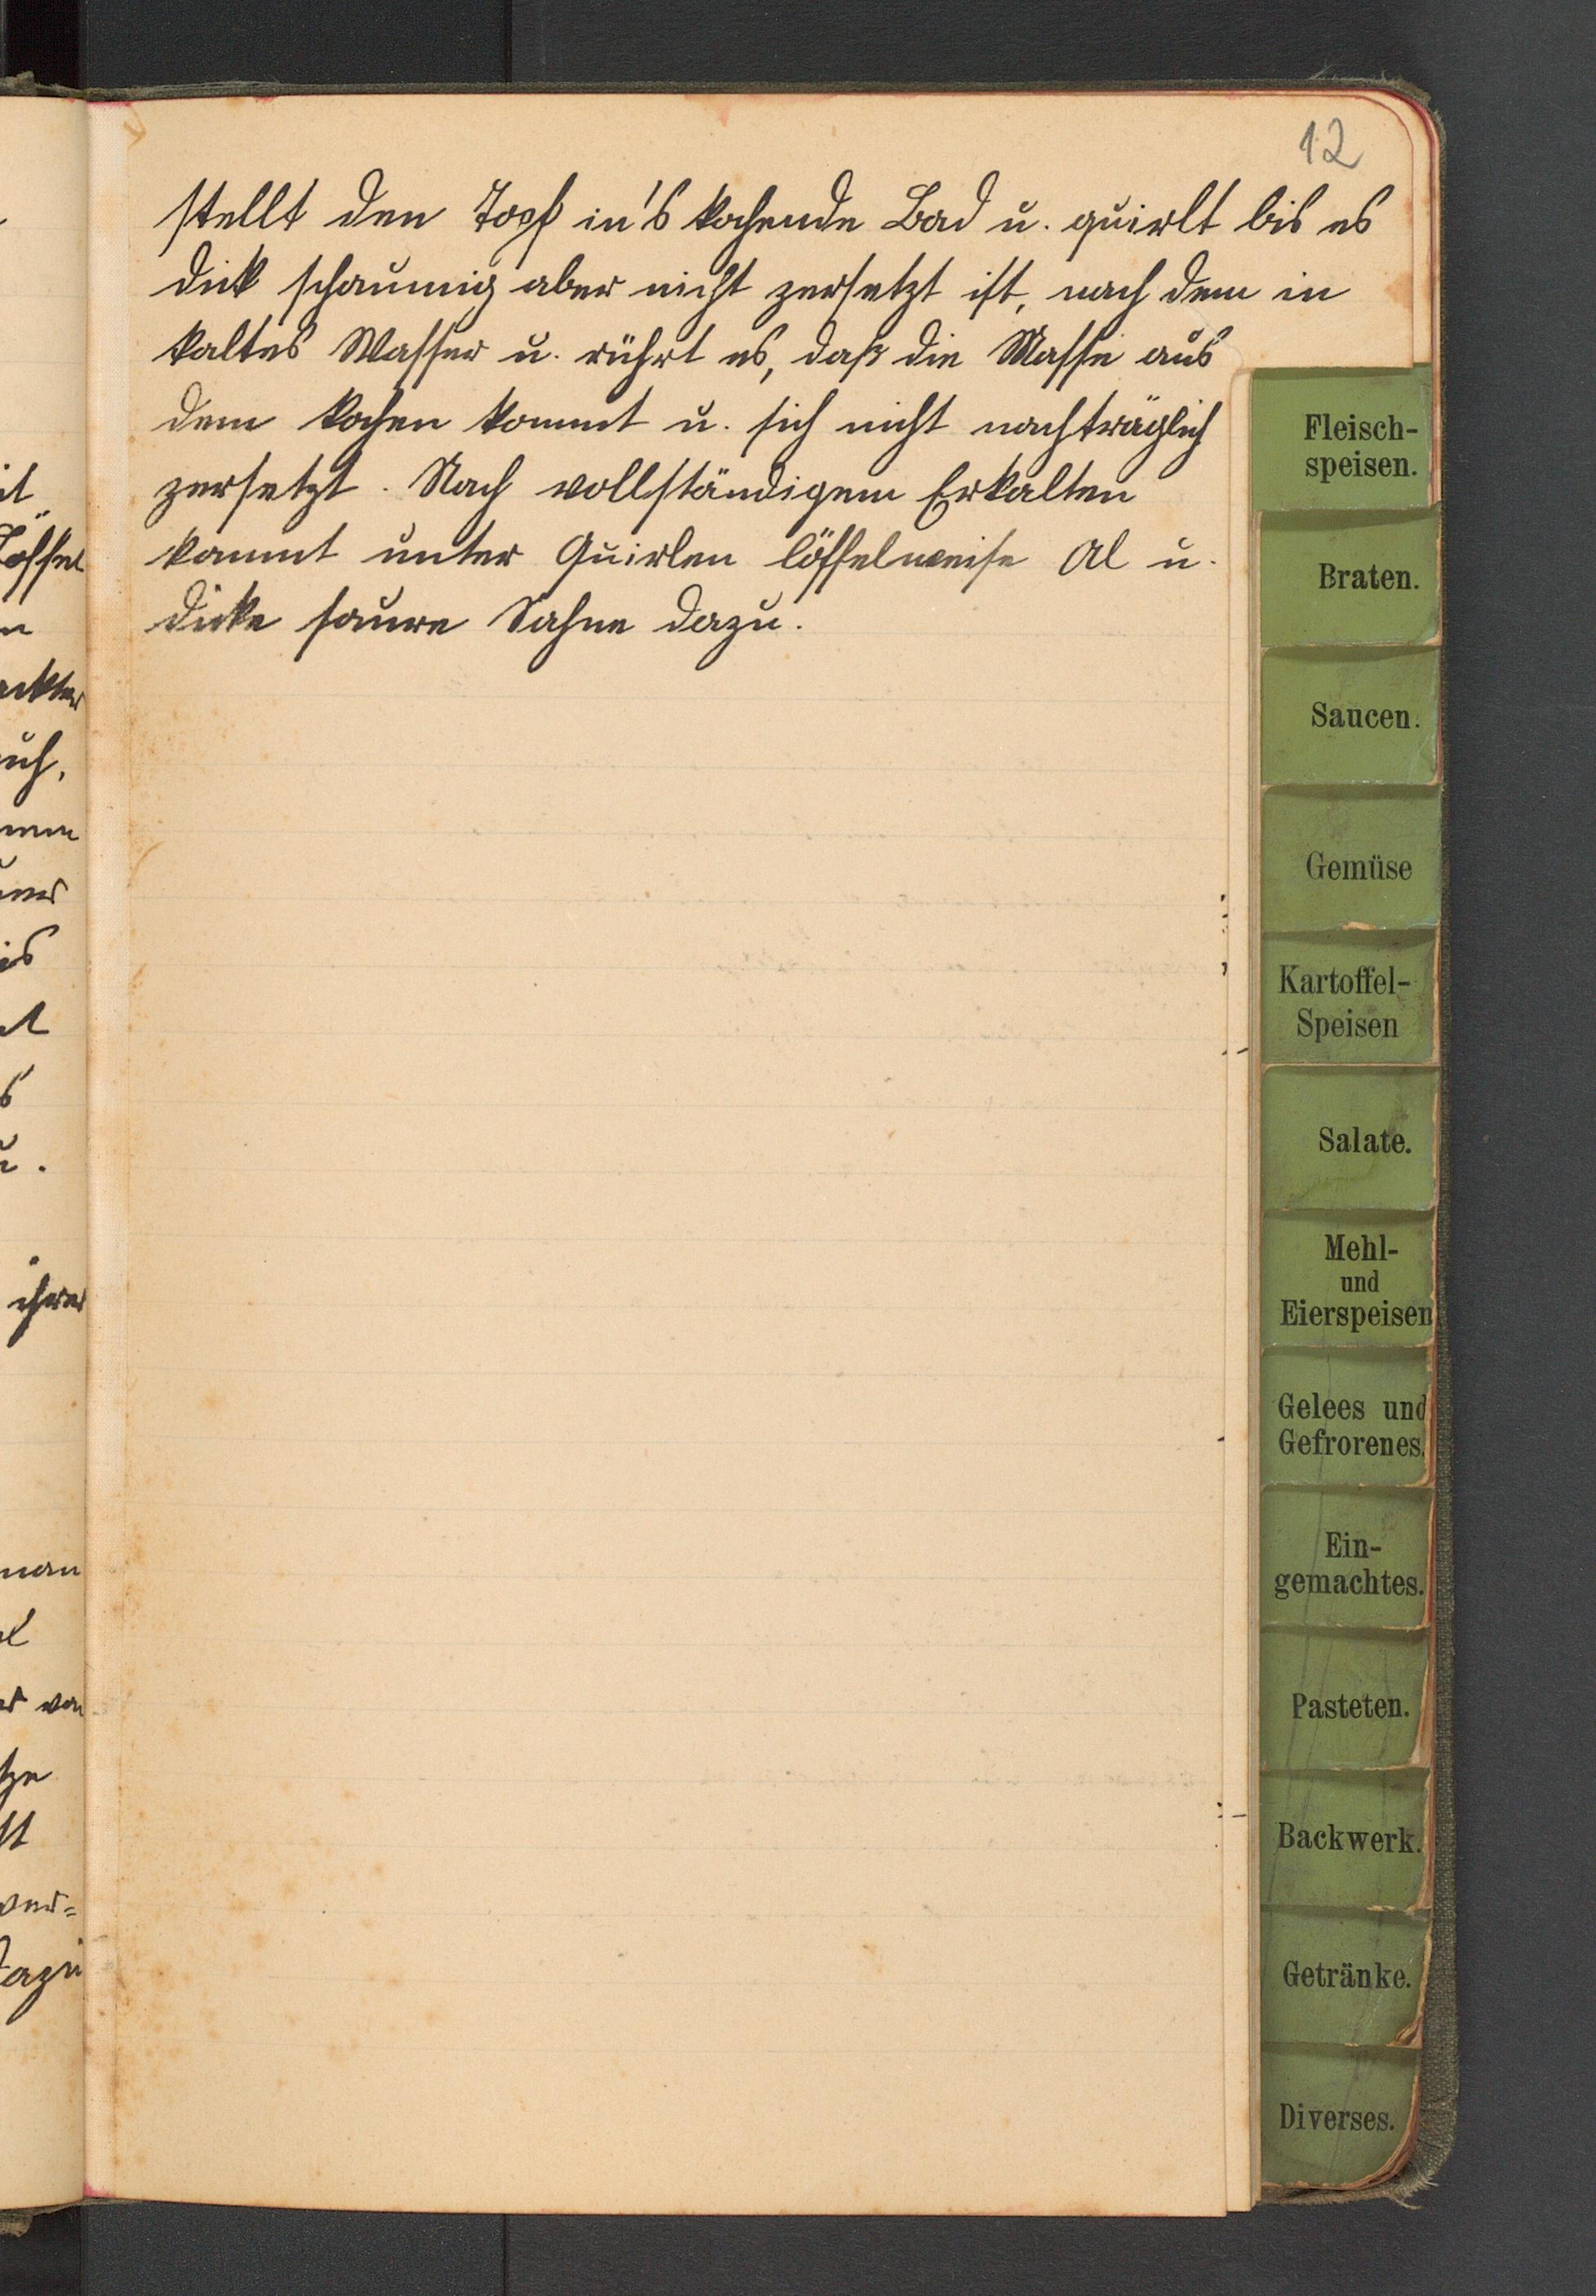 12
stellt den Topf in's kochende Bad u. quirlt bis es
dick schaumig aber nicht zersetzt ist, nach dem in
kaltes Wasser u. rührt es, daß die Masse aus
dem kochen kommt u. sich nicht nachträglich
zersetzt. Nach vollständigem Erkalten
kommt unter Quirlen löffelweise Öl u.
dicke saure Sahne dazu.
Fleisch-
speisen.
Braten.
Saucen.
Gemüse
Kartoffel-
Speisen
Salate.
Mehl-
und
Eierspeisen
Gelees und
Gefrorenes.
Ein-
gemachtes.
Pasteten.
Backwerk.
Getränke.
Diverses.